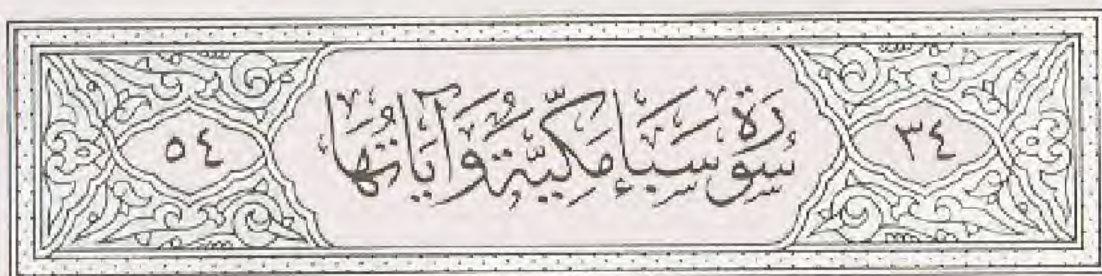 ٣٤ سُورَةُ سَبَإٍ مَكِّيَّة وَآيَاتُهَا ٥٤